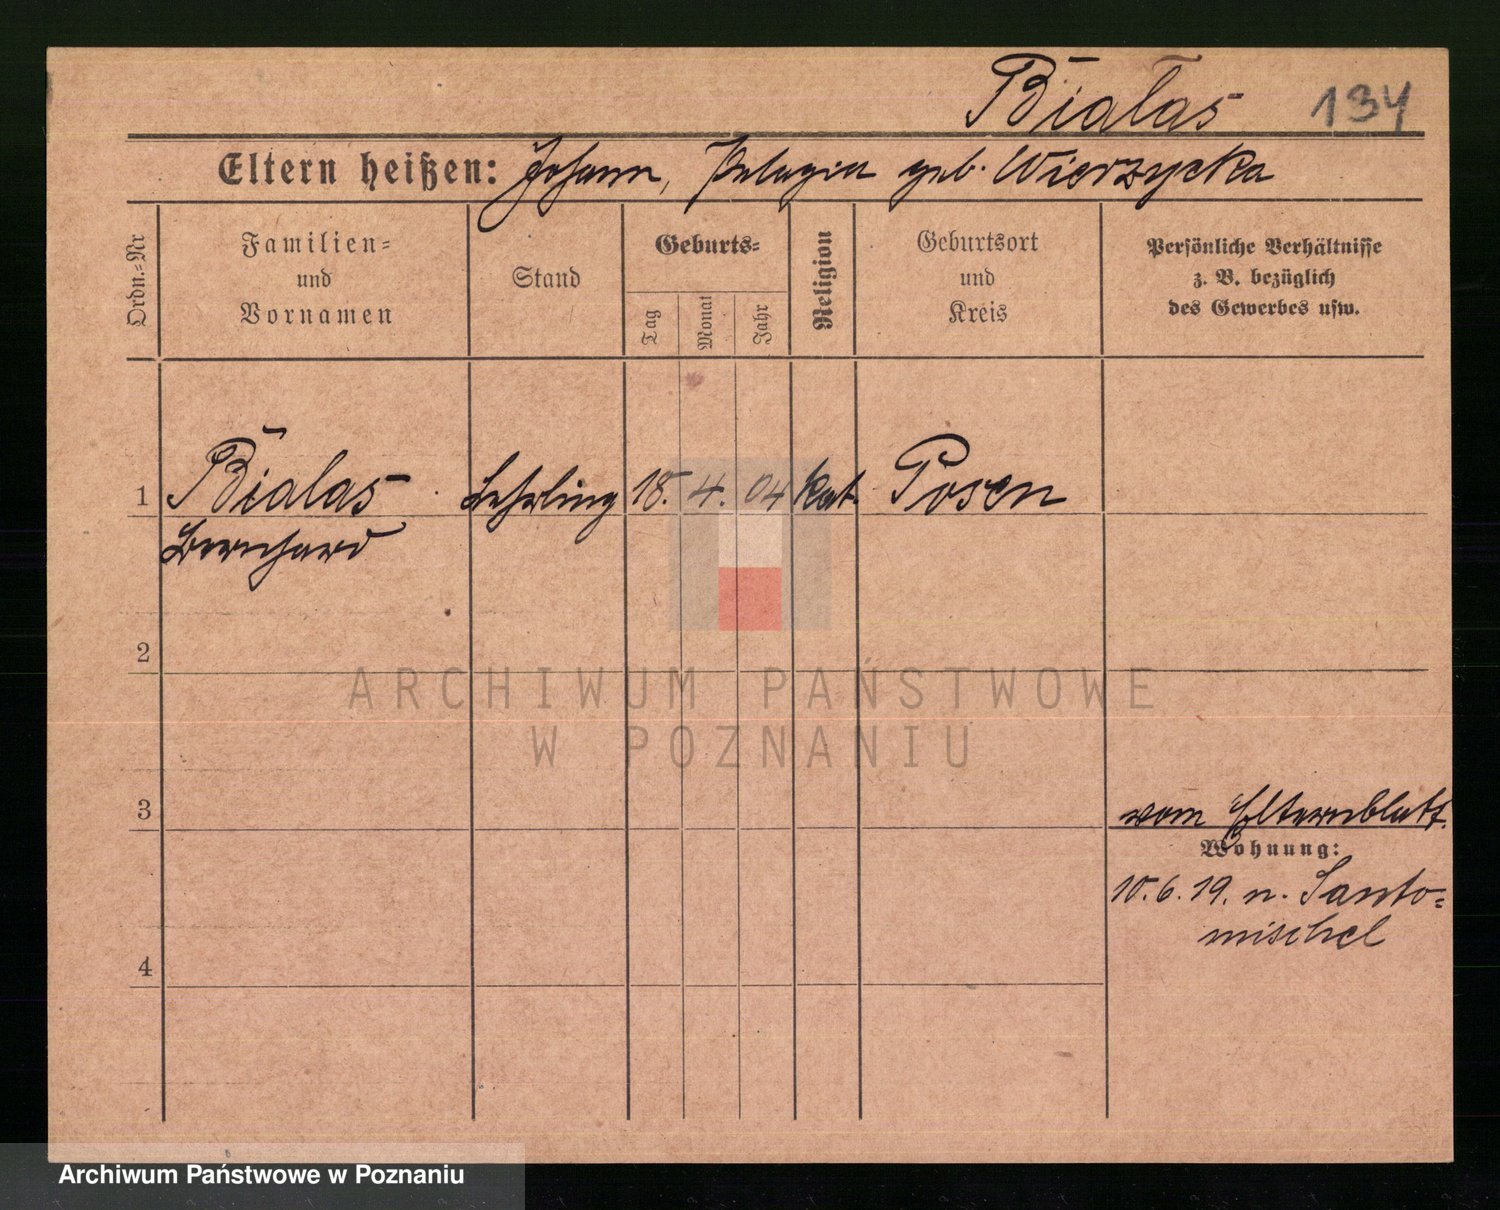 Bialas 134
Eltern heißen: Johann, Pelagia geb. Wierzycka
Ordn.-Nr
Familien-
und
Vornamen
Stand
Geburts-
Tag
Monat
Jahr
Religion
Geburtsort
und
Kreis
Persönliche Verhältnisse
z. B. bezüglich
des Gewerbes usw.
1 Bialas Lehrling 18. 4. 04 kat. Posen
Bernhard
2
ARCHIWUM PAŃSTWOWE
W POZNANIU
3 vom Elternblatt.
Wohnung:
10.6.19. n. Santo=
mischel
4
Archiwum Państwowe w Poznaniu